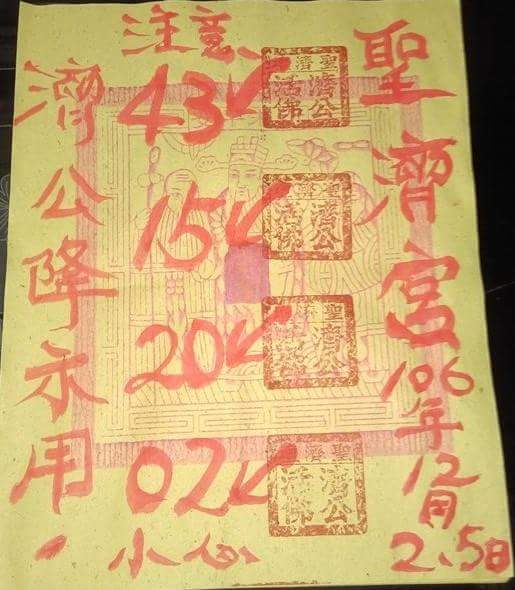 聖濟宮
106年12月
2、5日
注意、
43✓
15✓
20✓
02✓
小心、
濟公降示用
聖濟
濟公
活佛
聖濟
濟公
活佛
聖濟
濟公
聖濟
濟公
活佛